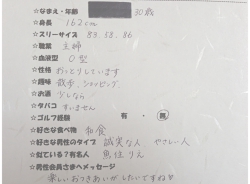 ☆なまえ・年齢 30歳
☆身長 162cm
☆スリーサイズ 83.58.86
☆職業 主婦
☆血液型 O型
☆性格 おっとりしています
☆趣味 散歩、ショッピング
☆お酒 少しなら
☆タバコ すいません
☆ゴルフ経験 有・無
☆好きな食べ物 和食
☆好きな男性のタイプ 誠実な人 やさしい人
☆似ている?有名人 魚住りえ
☆男性会員さまへメッセージ
楽しいおつきあいがしたいですね